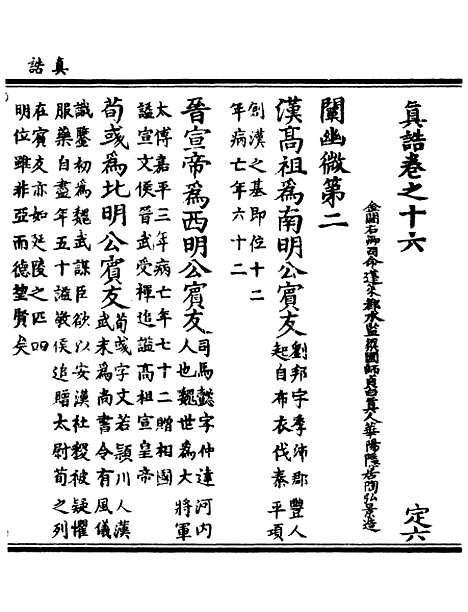 真誥
真誥卷之十六
定六
金闕右卿司命蓬萊都水監梁國師貞白真人華陽隱居陶弘景造
闡幽微第二
漢高祖爲南明公賓友劉邦字季沛郡豐人
起自布衣伐秦平項
創漢之基即位十二
年病亡年六十二
晉宣帝爲西明公賓友司馬懿字仲達河内
人也魏世爲大將軍
太傅嘉平三年病亡年七十二贈相國
謚宣文侯晉武受禪追謚高祖宣皇帝
荀彧爲北明公賓友荀彧字文若潁川人漢
武末爲尚書令有風儀
識鑒初爲魏武謀臣欲以安漢社稷被疑懼
服藥自盡年五十謚敬侯追贈太尉荀之列
在賓友亦如延陵之匹四
明位雖非亞而德望賢矣